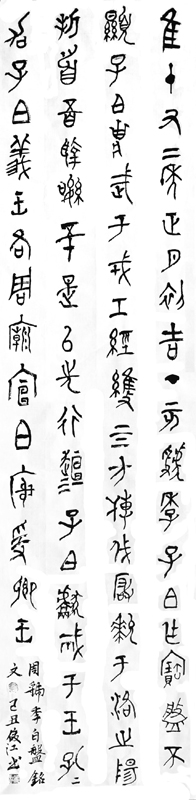 隹十又二年正月初吉丁亥虢季子白乍寶盤不
顯子白壯武于戎工經維四方搏伐玁狁于洛之陽
折首五百執訊五十是以先行桓桓子白獻馘于王孔
加子白義王各周廟宣榭爰鄉王
周虢季白盤銘
文 己丑俊江書